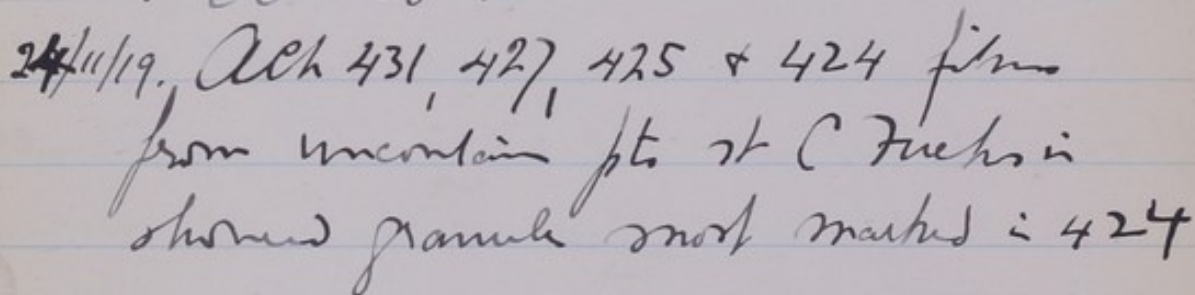 24/11/19. Ach 431, 427, 425 & 424 films
from uncontam pts st C Fuchsin
showed granules most marked in 424